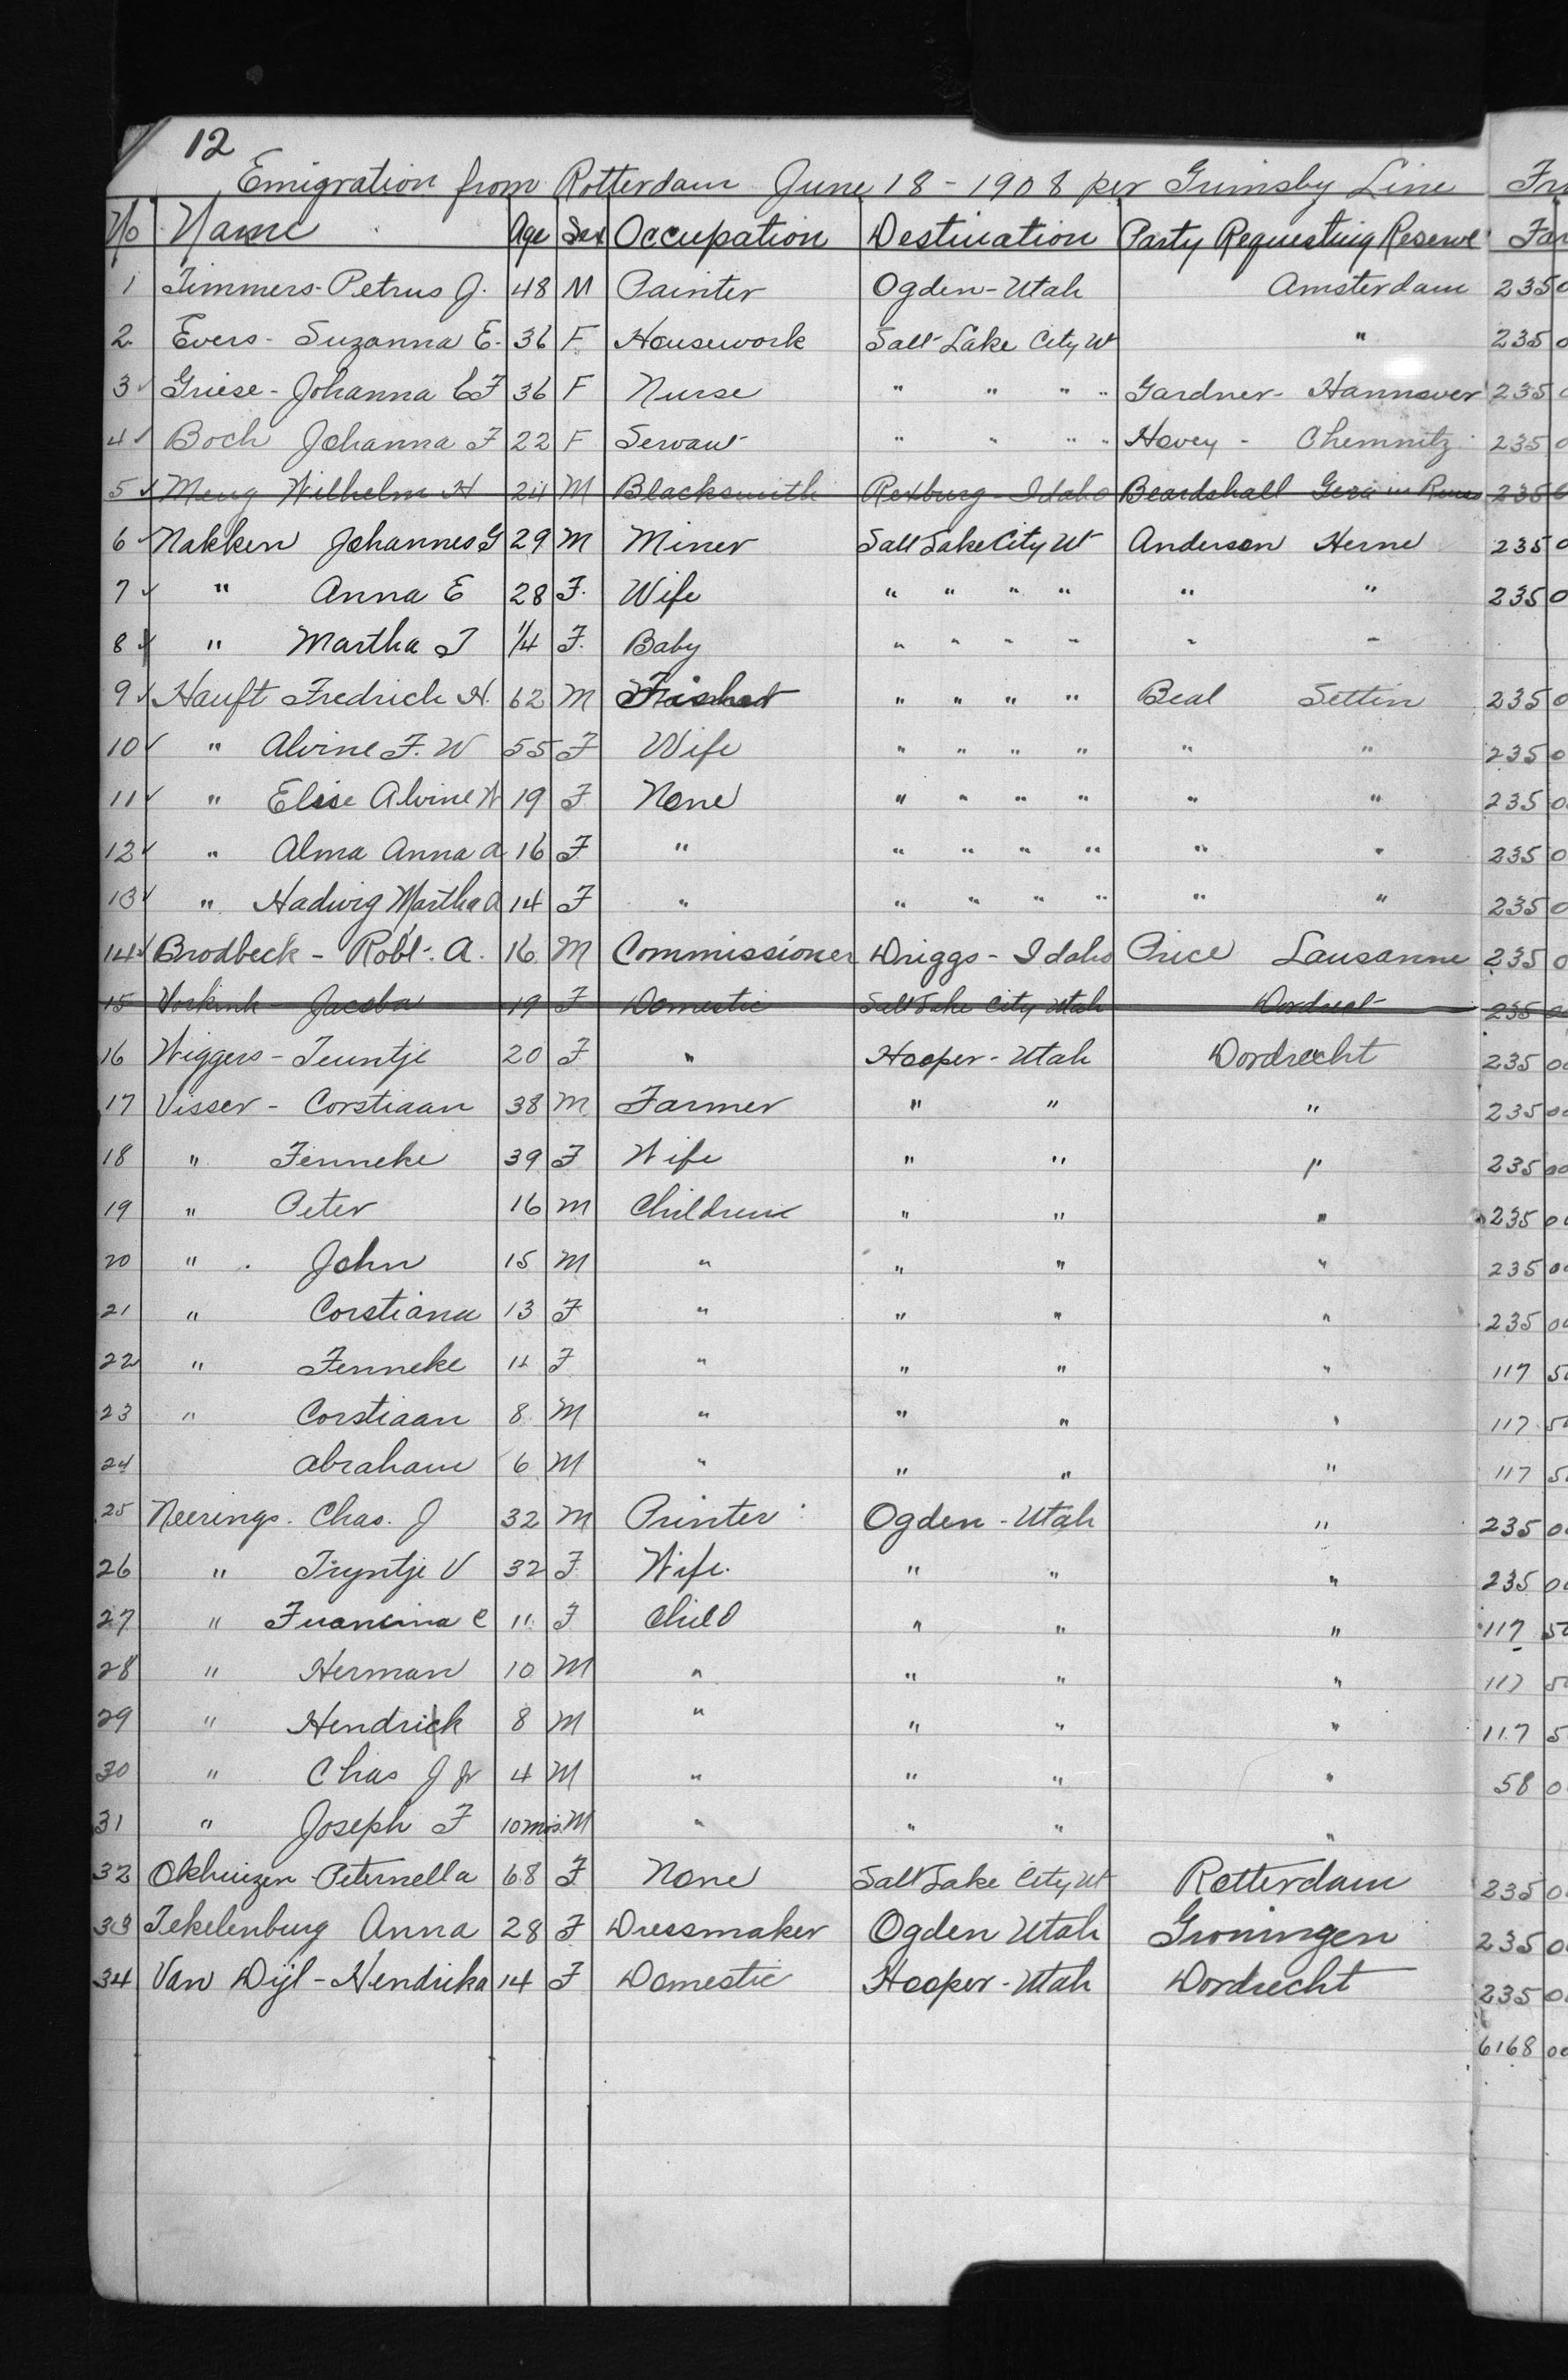 12
Emigration from Rotterdam June 18 - 1908 per Grimsby Line
No Name Age Sex Occupation Destination Party Requesting Reserve
1 Timmers - Petrus J. 48 M Painter Ogden - Utah Amsterdam 235 0
2 Evers - Suzanna E. 36 F Housework Salt Lake City Ut " 235 0
3 ✓ Griese - Johanna C F 36 F Nurse " " " " Gardner - Hannover 235 0
4 ✓ Boch Johanna F 22 F Servant " " " " Hovey - Chemnitz 235 0
5 ✓ Meng Wilhelm H 24 M Blacksmith Rexburg - Idaho Beardshall Gera 235 0
6 ✓ Nakken Johannes G 29 M Miner Salt Lake City Ut Anderson Herne 235 0
7 ✓ " Anna E 28 F. Wife " " " " " " 235 0
8 ✓ " Martha T 1/4 F. Baby " " " " " "
9 ✓ Hauft Fredrich H. 62 M " " " " Beal Settin 235 0
10 ✓ " Alvine F. W 55 F Wife " " " " " " 235 0
11 ✓ " Elise Alvine W 19 F None " " " " " " 235 0
12 ✓ " Alma Anna A 16 F " " " " " " " 235 0
13 ✓ " Hadwig Martha A 14 F " " " " " " " 235 0
14 ✓ Brodbeck - Robt. A. 16 M Commissioner Driggs - Idaho Price Lausanne 235 0
15 Vorkink - Jacoba 19 F Domestic Salt Lake City Utah Dordrect 235 00
16 Wiggers - Teuntje 20 F " Hooper - Utah Dordrecht 235 00
17 Visser - Corstiaan 38 M Farmer " " " 235 00
18 " Fenneke 39 F Wife " " " 235 00
19 " Peter 16 M Children " " " 235 00
20 " John 15 M " " " " 235 00
21 " Corstiana 13 F " " " " 235 00
22 " Fenneke 11 F " " " " 117 50
23 " Corstiaan 8 M " " " " 117 5
24 Abraham 6 M " " " " 117 5
25 Neerings. Chas. J 32 M Printer Ogden - Utah " 235 0
26 " Tryntje V 32 F Wife. " " " 235 00
27 " Francina C 11 F Child " " " 117 50
28 " Herman 10 M " " " " 117 50
29 " Hendrick 8 M " " " " 117 5
30 " Chas J Jr 4 M " " " " 58 0
31 " Joseph F 10 mos. M " " " "
32 Okhuizen Peternella 68 F None Salt Lake City Ut Rotterdam 235 0
33 Tekelenburg Anna 28 F Dressmaker Ogden Utah Groningen 235 0
34 Van Dijl - Hendrika 14 F Domestic Hooper - Utah Dordrecht 235 00
6168 00